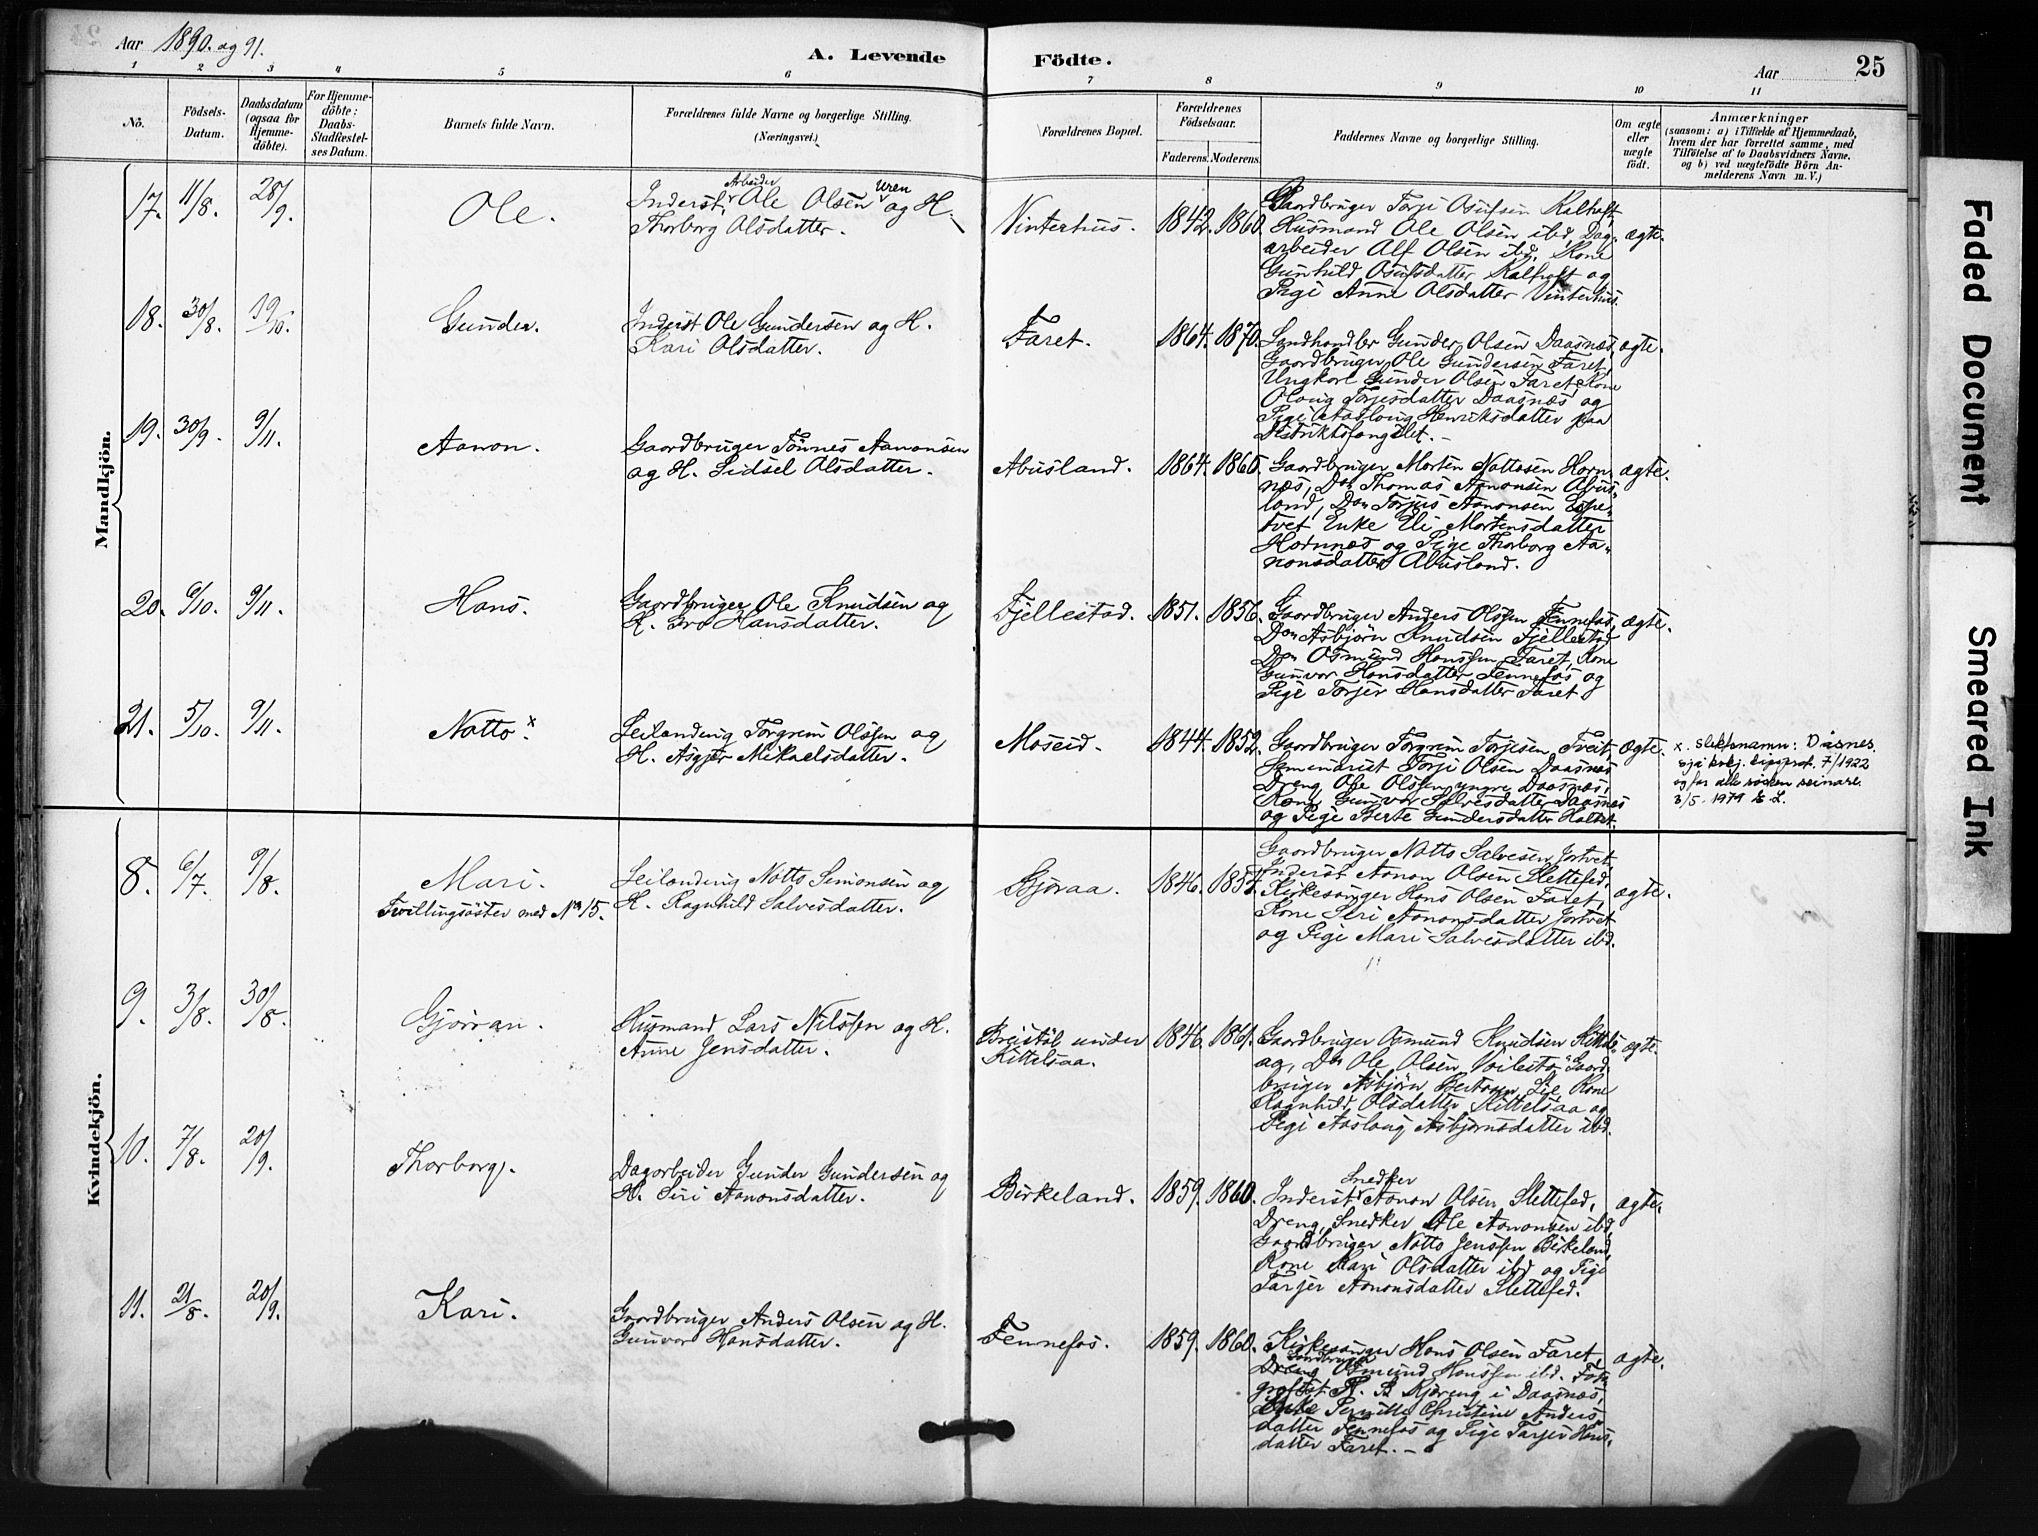 Aar 1890. og 91.
A. Levende
Födte.
Aar
25
1 2 3 4 5 6 7 8 9 10 11
No.
Födsels-
Datum.
Daabsdatum
(ogsaa for
Hjemme-
döbte).
For Hjemme-
döbte:
Daabs-
Stadfæstel-
ses Datum.
Barnets fulde Navn.
Forældrenes fulde Navne og borgerlige Stilling.
(Næringsvei.)
Forældrenes Bopæl.
Forældrenes
Födselsaar.
Faderens. Moderens.
Faddernes Navne og borgerlige Stilling.
Om ægte
eller
uægte
födt.
Anmærkninger
(saasom: a) i Tilfælde af Hjemmedaab,
hvem der har forrettet samme, med
Tilföielse af to Daabsvidners Navne,
og b) ved uægtefödte Börn An-
melderens Navn m. V.)
Mandkjön.
17. 11/8. 28/9.
Ole.
Inderst, Arbeider Ole Olsen Uren og H.
Thorborg Olsdatter.
Vinterhus.
1842. 1860.
Gaardbruger Torje Osufsen Kalhoft,
Husmand Ole Olsen ibd, Dag-
arbeider Alf Olsen ibd, Kone
Gunhild Osufsdatter Kalhoft og
Pige Anne Olsdatter Vinterhus.
ægte.
18. 30/8. 19/10.
Gunder.
Inderst Ole Gundersen og H.
Kari Olsdatter.
Faret.
1864. 1870.
Landhandler Gunder Olsen Daasnes,
Gaardbruger Ole Gundersen Faret,
Ungkarl Gunder Olsen Faret, Kone
Olaug Torjesdatter Daasnæs og
Pige Aaslaug Henriksdatter paa
Distriktsfængslet.
ægte.
19. 30/9. 9/11.
Aanon.
Gaardbruger Tönnes Aanonsen
og H. Sidsel Olsdatter.
Abusland.
1864. 1865.
Gaardbruger Morten Nottosen Horn-
næs, Do Thomas Aanonsen Abus-
land, Do Torjus Aanonsen Espe-
tvet, Enke Eli Mortensdatter
Hornnæs og Pige Thorborg Aa-
nonsdatter Abusland.
ægte.
20. 6/10. 9/11.
Hans.
Gaardbruger Ole Knudsen og
H. Gro Hansdatter.
Fjellestad.
1851. 1856.
Gaardbruger Anders Olssen Fennefos,
Do Asbjörn Knudsen Fjellestad
Do Osmund Hanssen Faret, Kone
Gunvor Hansdatter Fennefos og
Pige Torjer Hansdatter Faret
ægte.
21. 5/10. 9/11.
Notto. x
Leilending Torgrim Olssen og
H. Asgjer Mikaelsdatter.
Moseid.
1844. 1852.
Gaardbruger Torgrim Torjesen Tveit,
Seminarist Torje Olsen Daasnæs
Dreng Ole Olssen yngre Daasnæs,
Kone Gunvor Salvesdatter Daasnæs
og Pige Berte Gundersdatter
Ægte.
x. slektsnamn: Dåsnes.
sjå kykj. eigsprot. 7/1922
og for alle söken seinare.
3/5. 1979 E. L.
Kvindekjön.
8. 6/7. 9/8.
Mari.
Tvillingsöster med No 15.
Leilending Notto Simonsen og
H. Ragnhild Salvesdatter.
Gjöraa.
1846. 1857.
Gaardbruger Notto Salvesen Jortvet
Inderst Aanon Olsen Slettefed,
Kirkesanger Hans Olsen Faret,
Kone Siri Aanonsdatter Jortvet
og Pige Mari Salvesdatter ibd.
ægte.
9. 3/8. 30/8.
Gjörran.
Husmand Lars Nilssen og H.
Anne Jensdatter.
Breistöl under
Kittelsaa.
1846. 1861.
Gaardbruger Osmund Knudsen Kittels-
aa, Do Ole Olsen Gaard-
bruger Asbjörn Lie, Kone
Ragnhild Olsdatter Kittelsaa og
Pige Aaslaug Asbjörnsdatter ibd.
ægte.
10. 7/8. 20/9.
Thorborg.
Dagarbeider Gunder Gundersen og
H. Siri Aanonsdatter.
Birkeland.
1859. 1860.
Inderst Snedker Aanon Olsen Slettefed,
Dreng, Snedker Ole Aanonsen ibd,
Gaardbruger Notto Jenssen Birkeland,
Kone Mari Olsdatter ibd og Pige
Tarjer Aanonsdatter Slettefed.
ægte.
11. 21/8. 20/9.
Kari.
Gaardbruger Anders Olsen og H.
Gunvor Hansdatter.
Fennefos.
1859. 1860.
Kirkesanger Hans Olsen Faret,
Gaardbruger Osmund Hanssen ibd. Fot-
Daasnæs,
Enke Pernille Christine Anders-
datter Fennefos og Pige Tarjer Hans-
datter Faret.
ægte.
Faded Document
Smeared Ink